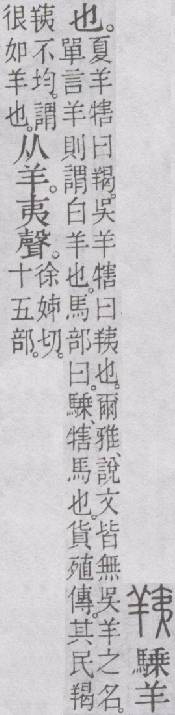 羠 騬羊
也。
夏羊犗曰羯。吳羊犗曰羠也。爾雅、說文皆無吳羊之名。
單言羊則謂白羊也。馬部曰。騬、犗馬也。貨殖傳。其民羯
羠不均。謂
很如羊也。
从羊。夷聲。
徐姊切。
十五部。